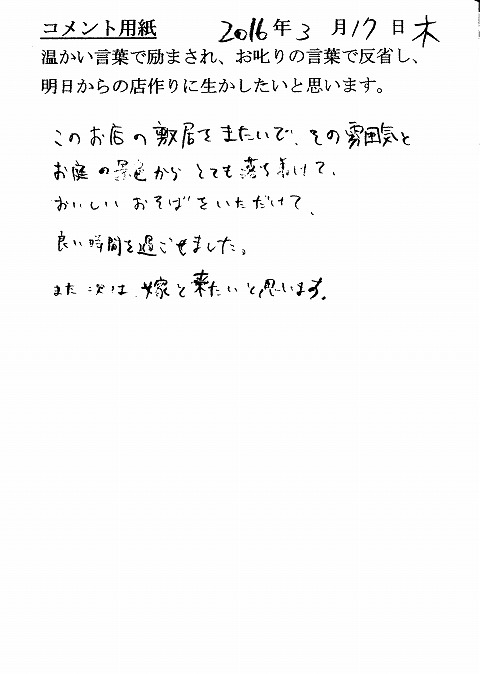 コメント用紙 2016年3月17日木
温かい言葉で励まされ、お叱りの言葉で反省し、
明日からの店作りに生かしたいと思います。
このお店の敷居をまたいで、その雰囲気と
お庭の景色からとても落ち着けて、
おいしいおそばをいただけて、
良い時間を過ごせました。
また次は、嫁と来たいと思います。